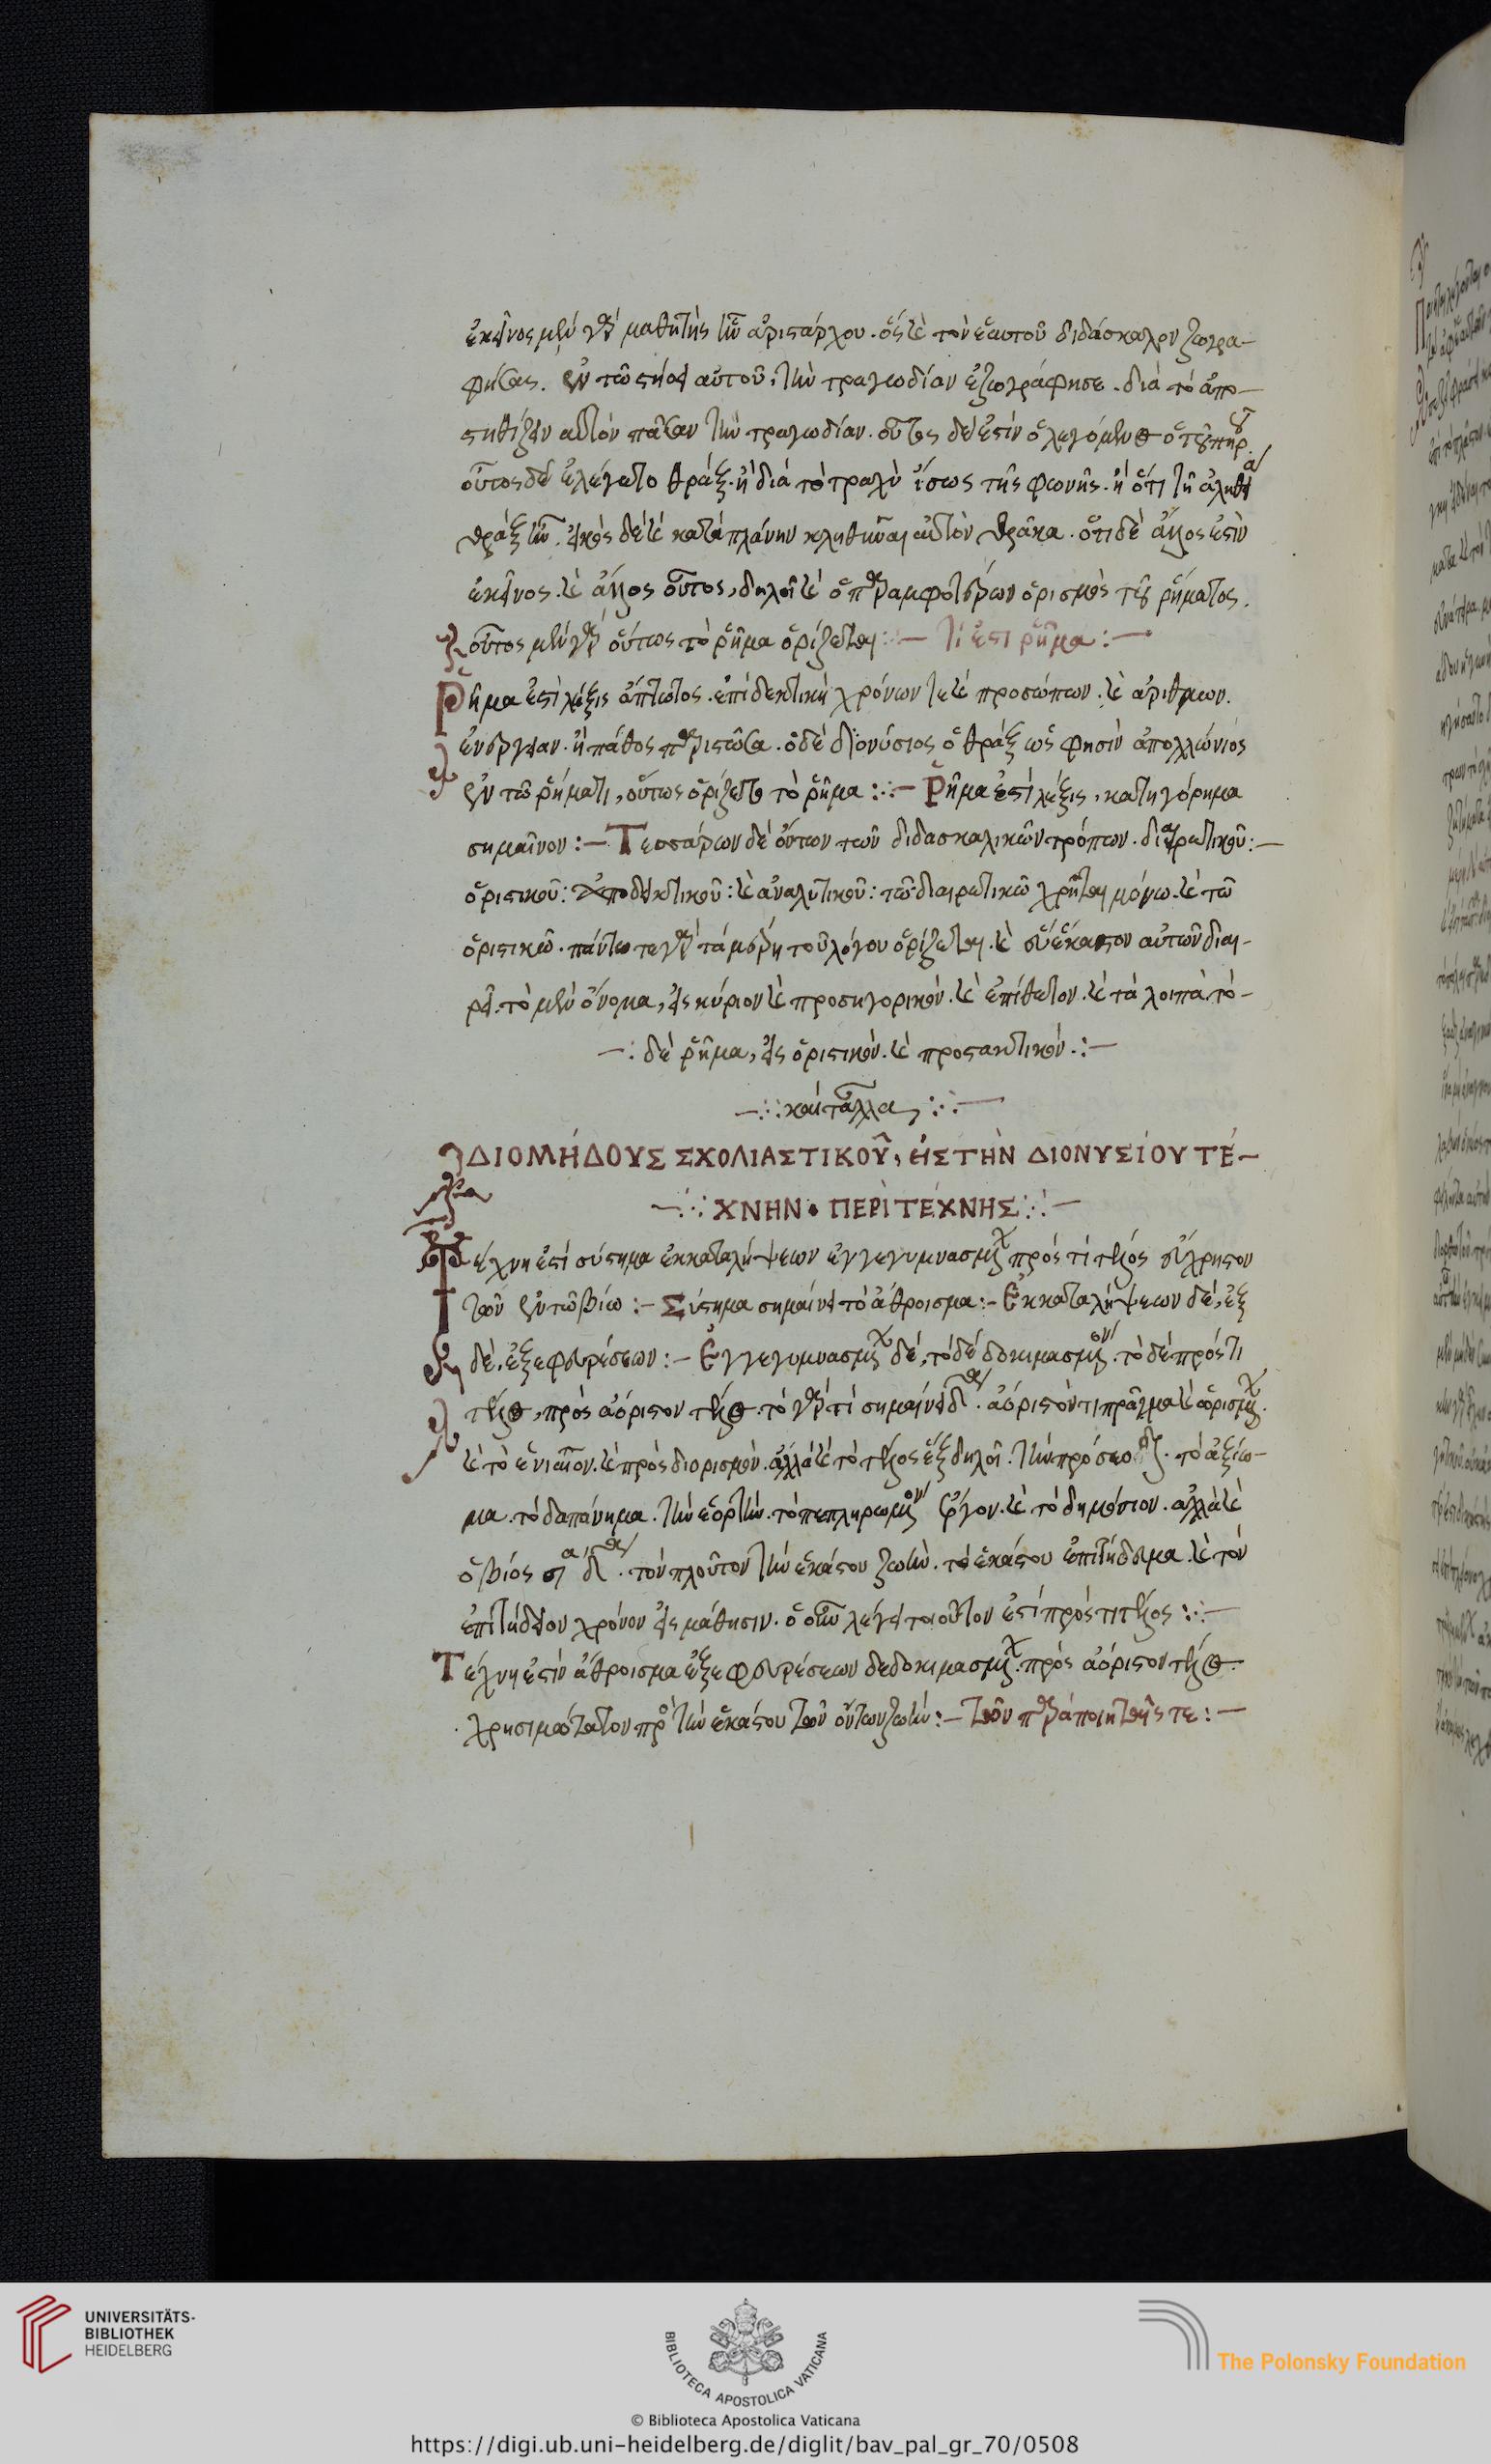 ἐκεῖνος μὲν γὰρ μαθητὴς ἦν ἀριστάρχου. ὅς καὶ τὸν ἑαυτοῦ διδάσκαλον ζωγρα-
φήσας. ἐν τῶ στήθει αὐτοῦ, τὴν τραγωδίαν ἐζωγράφησε. διὰ τὸ ἀπο-
στηθίζειν αὐτὸν πᾶσαν τὴν τραγωδίαν. οὗτος δέ ἐστιν ὁ λεγόμενος ὁ τοῦ πηροῦ.
οὗτος δὲ ἐλέγετο θράξ. ἢ διὰ τὸ τραχὺ ἴσως τῆς φωνῆς. ἢ ὅτι τῆ ἀληθεία
θράξ ἦν. εἰκὸς δὲ καὶ κατὰ πλάνην κληθῆναι αὐτὸν θρᾶκα. ὅτι δὲ ἄλλος ἐστὶν
ἐκεῖνος. καὶ ἄλλος οὗτος, δηλοῖ καὶ ὁ παρ' ἀμφοτέρων ὁρισμὸς τοῦ ῥήματος.
οὗτος μὲν γὰρ οὕτως τὸ ῥῆμα ὁρίζεται:— τί ἐστι ῥῆμα:—
Ῥῆμα ἐστὶ λέξις ἄπτωτος. ἐπιδεκτικὴ χρόνων τε καὶ προσώπων. καὶ ἀριθμων.
ἐνέργειαν. ἢ πάθος παριστῶσα. ὁ δὲ διονύσιος ὁ θράξ ὥς φησὶν ἀπολλώνιός
ἐν τῶ ῥήματι, οὕτως ὁρίζεται τὸ ῥῆμα:— Ῥῆμα ἐστὶ λέξις, κατηγόρημα
σημαῖνον:— Τεσσάρων δὲ ὄντων τῶν διδασκαλικῶν τρόπων. διαιρετικοῦ:—
ὁριστικοῦ: ἀποδεικτικοῦ: καὶ ἀναλυτικοῦ: τῶ διαιρετικῶ χρῆται μόνω. καὶ τῶ
ὁριστικῶ. πάντα τε γὰρ τὰ μέρη τοῦ λόγου ὁρίζεται. καὶ ἕκαστον αὐτῶν διαι-
ρεῖ. τὸ μὲν ὄνομα, εἰς κύριον καὶ προσηγορικόν. καὶ ἐπίθετον. καὶ τὰ λοιπὰ. τὸ-
—: δὲ ῥῆμα, εἰς ὁριστικόν. καὶ προστακτικόν.:—
—:καὶ τἄλλα:—
ΔΙΟΜΗΔΟΥΣ ΣΧΟΛΙΑΣΤΙΚΟῦ, ΕἸΣ ΤῊΝ ΔΙΟΝΥΣΊΟΥ ΤΈ-
—:ΧΝΗΝ· ΠΕΡῚ ΤΈΧΝΗΣ:—
Τέχνη ἐστὶ σύστημα ἐκ καταλήψεων ἐγγεγυμνασμένων πρός τί τέλος εὔχρηστον
τῶν ἐν τῶ βίω:— Σύστημα σημαίνει τὸ ἄθροισμα:— Ἐκ καταλήψεων δὲ, ἐξ
δὲ, ἐξ ἐφευρέσεων:— Ἐγγεγυμνασμένων δέ, τὸ δεδοκιμασμένον. τὸ δὲ πρός τι
τέλος, πρὸς ἀόριστον τέλος. τὸ γὰρ τὶ σημαίνει δύο. ἀόριστόν τι πρᾶγμα καὶ ὁρισμένον.
καὶ τὸ ἐνιαῖον. καὶ πρὸς διορισμόν. ἀλλὰ καὶ τὸ τέλος ἓξ δηλοῖ. τὴν πρόσκο. τὸ ἀξίω-
μα. τὸ δαπάνημα. τὴν ἑορτήν. τὸ πεπληρωμένον ἔργον. καὶ τὸ δημόσιον. ἀλλὰ καὶ
ὁ βίος. τὸν πλοῦτον τὴν ἑκάστου ζωὴν. τὸ ἑκάστου ἐπιτήδευμα. καὶ τὸν
ἐπιτήδειον χρόνον εἰς μάθησιν. ὃ οὖν λέγει τοιοῦτον ἐστί πρός τι τέλος:—
Τέχνη ἐστὶν ἄθροισμα ἐξ ἐφευρέσεων δεδοκιμασμένων. πρὸς ἀόριστον τέλος.
χρησιμώτατον πρὸς τὴν ἑκάστου τῶν ὄντων ζωήν:— τῶν παρὰ ποιηταῖς τε:—
UNIVERSITÄTS-
BIBLIOTHEK
HEIDELBERG
BIBLIOTECA APOSTOLICA VATICANA
The Polonsky Foundation
© Biblioteca Apostolica Vaticana
https://digi.ub.uni-heidelberg.de/diglit/bav_pal_gr_70/0508